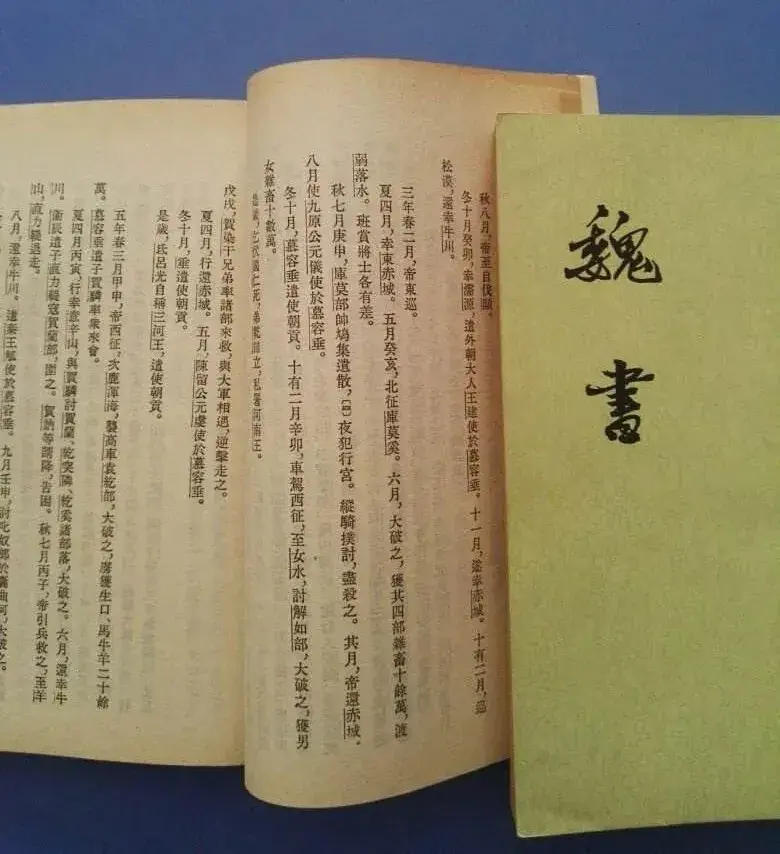 魏書
秋八月,帝至自伐顯。
冬十月癸卯,幸濡源,遣外朝大人王建使於慕容垂。十一月,遂幸赤城。十有二月,巡
松漠,還幸牛川。
三年春二月,帝東巡。
夏四月,幸東赤城。五月癸亥,北征庫莫奚。六月,大破之,獲其四部雜畜十餘萬,渡
弱落水。班賞將士各有差。
秋七月庚申,庫莫部帥鳩集遺散,〔四〕夜犯行宮。縱騎撲討,盡殺之。其月,帝還赤城。
八月使九原公元儀使於慕容垂。
冬十月,慕容垂遣使朝貢。十有二月辛卯,車駕西征,至女水,討解如部,大破之,獲男
女雜畜十數萬。
是歲,乞伏國仁死,弟乾歸立,私署河南王。
戊戌,賀染干兄弟率諸部來救,與大軍相遇,逆擊走之。
夏四月,行還赤城。五月,陳留公元虔使於慕容垂。
冬十月,垂遣使朝貢。
是歲,氐呂光自稱三河王,遣使朝貢。
五年春三月甲申,帝西征,次鹿渾海,襲高車袁紇部,大破之,虜獲生口、馬牛羊二十餘
萬。慕容垂遣子賀驎率衆來會。
夏四月丙寅,行幸意辛山,與賀驎討賀蘭、紇突隣、紇奚諸部落,大破之。六月,還幸牛
川。衞辰遣子直力鞮寇賀蘭部,圍之。賀訥等請降,告困。秋七月丙子,帝引兵救之,至羊
山,直力鞮退走。
八月,還幸牛川。遣秦王觚使於慕容垂。九月壬申,討叱奴部於囊曲河,大破之。